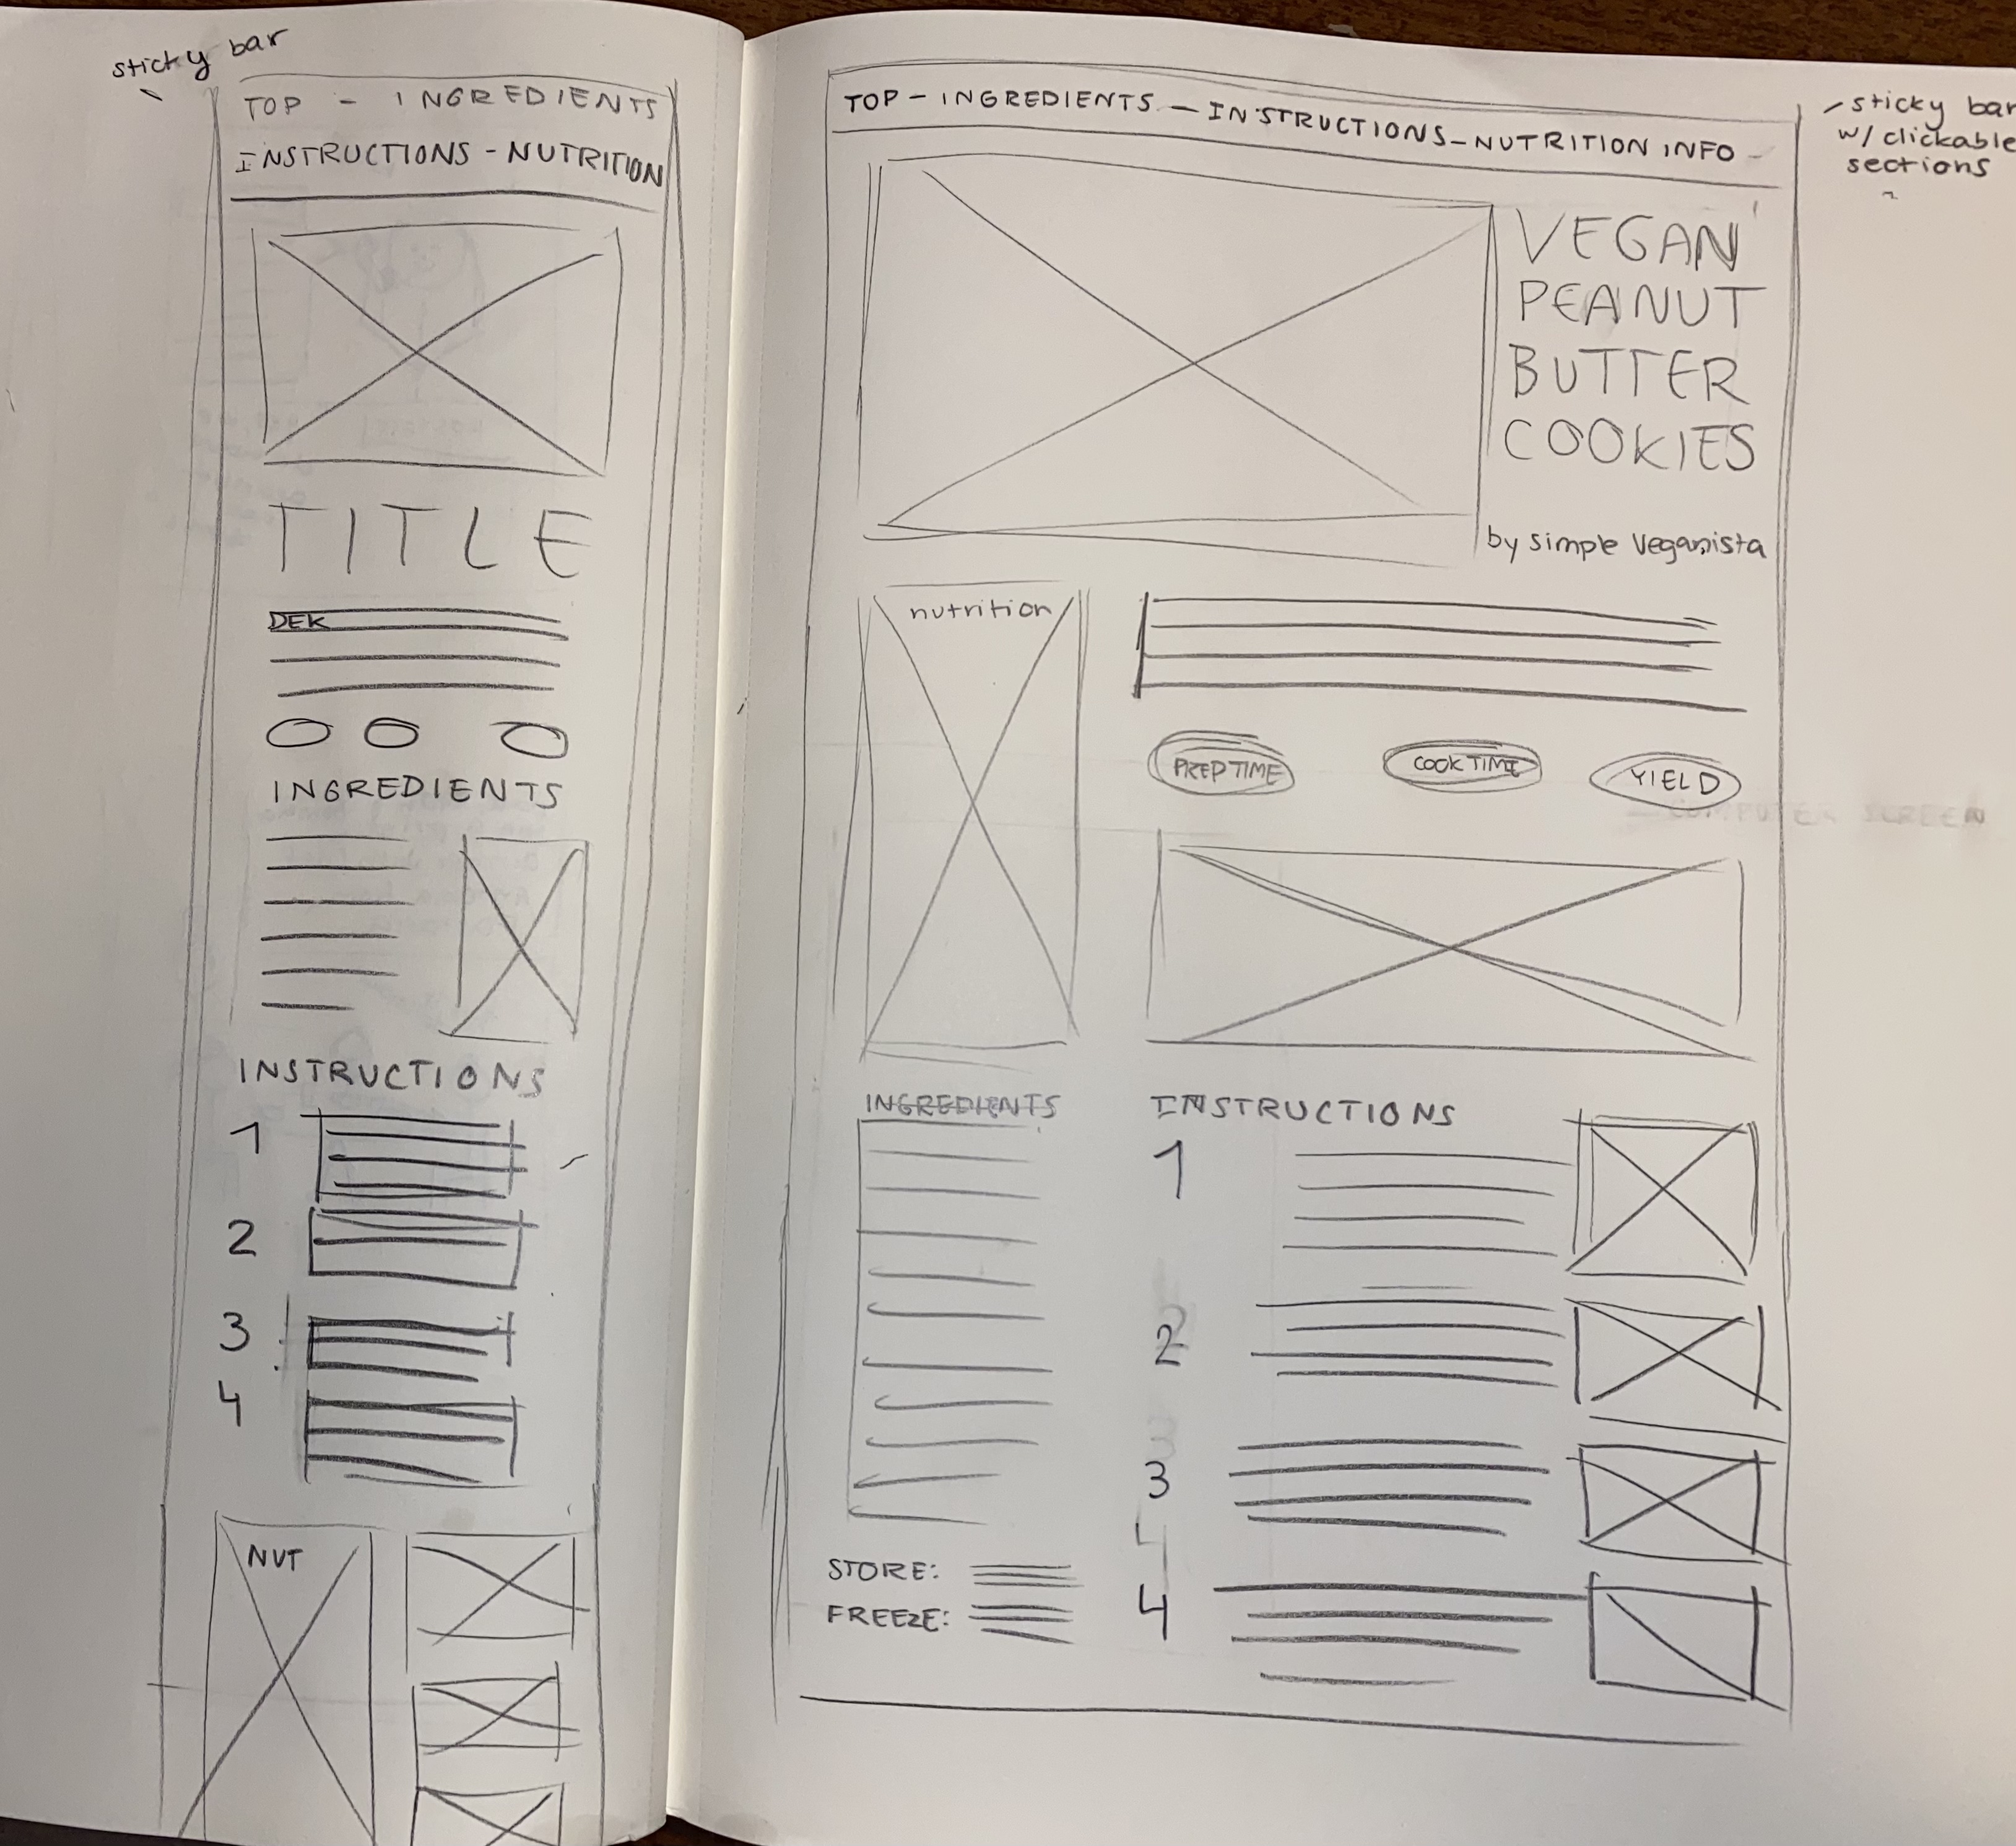 sticky bar
TOP - INGREDIENTS
INSTRUCTIONS - NUTRITION
TITLE
DEK
INGREDIENTS
INSTRUCTIONS
1
2
3
4
NUT
TOP - INGREDIENTS - INSTRUCTIONS - NUTRITION INFO -
- sticky bar
w/ clickable
sections
VEGAN
PEANUT
BUTTER
COOKIES
by simple Veganista
nutrition
PREP TIME
COOK TIME
YIELD
COMPUTER SCREEN
INGREDIENTS
INSTRUCTIONS
1
2
3
4
STORE:
FREEZE: